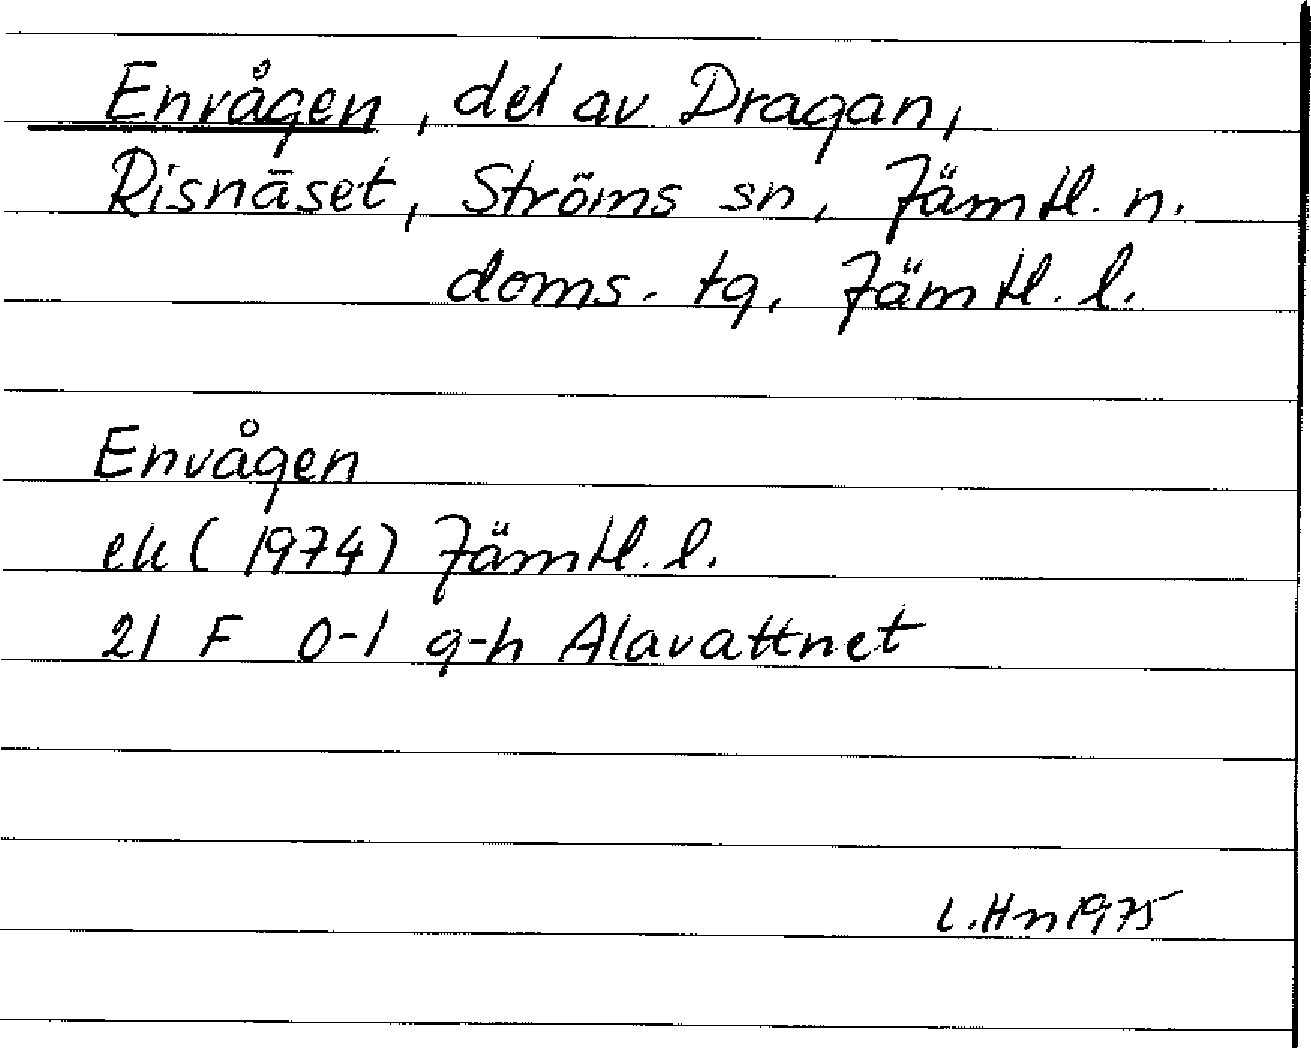 Envågen, del av Dragan,
Risnäset, Ströms sn, Jämtl. n.
doms. tg, Jämtl. l.
Envågen
ek (1974) Jämtl. l.
21 F 0-1 g-h Alavattnet
L.Hn 1975